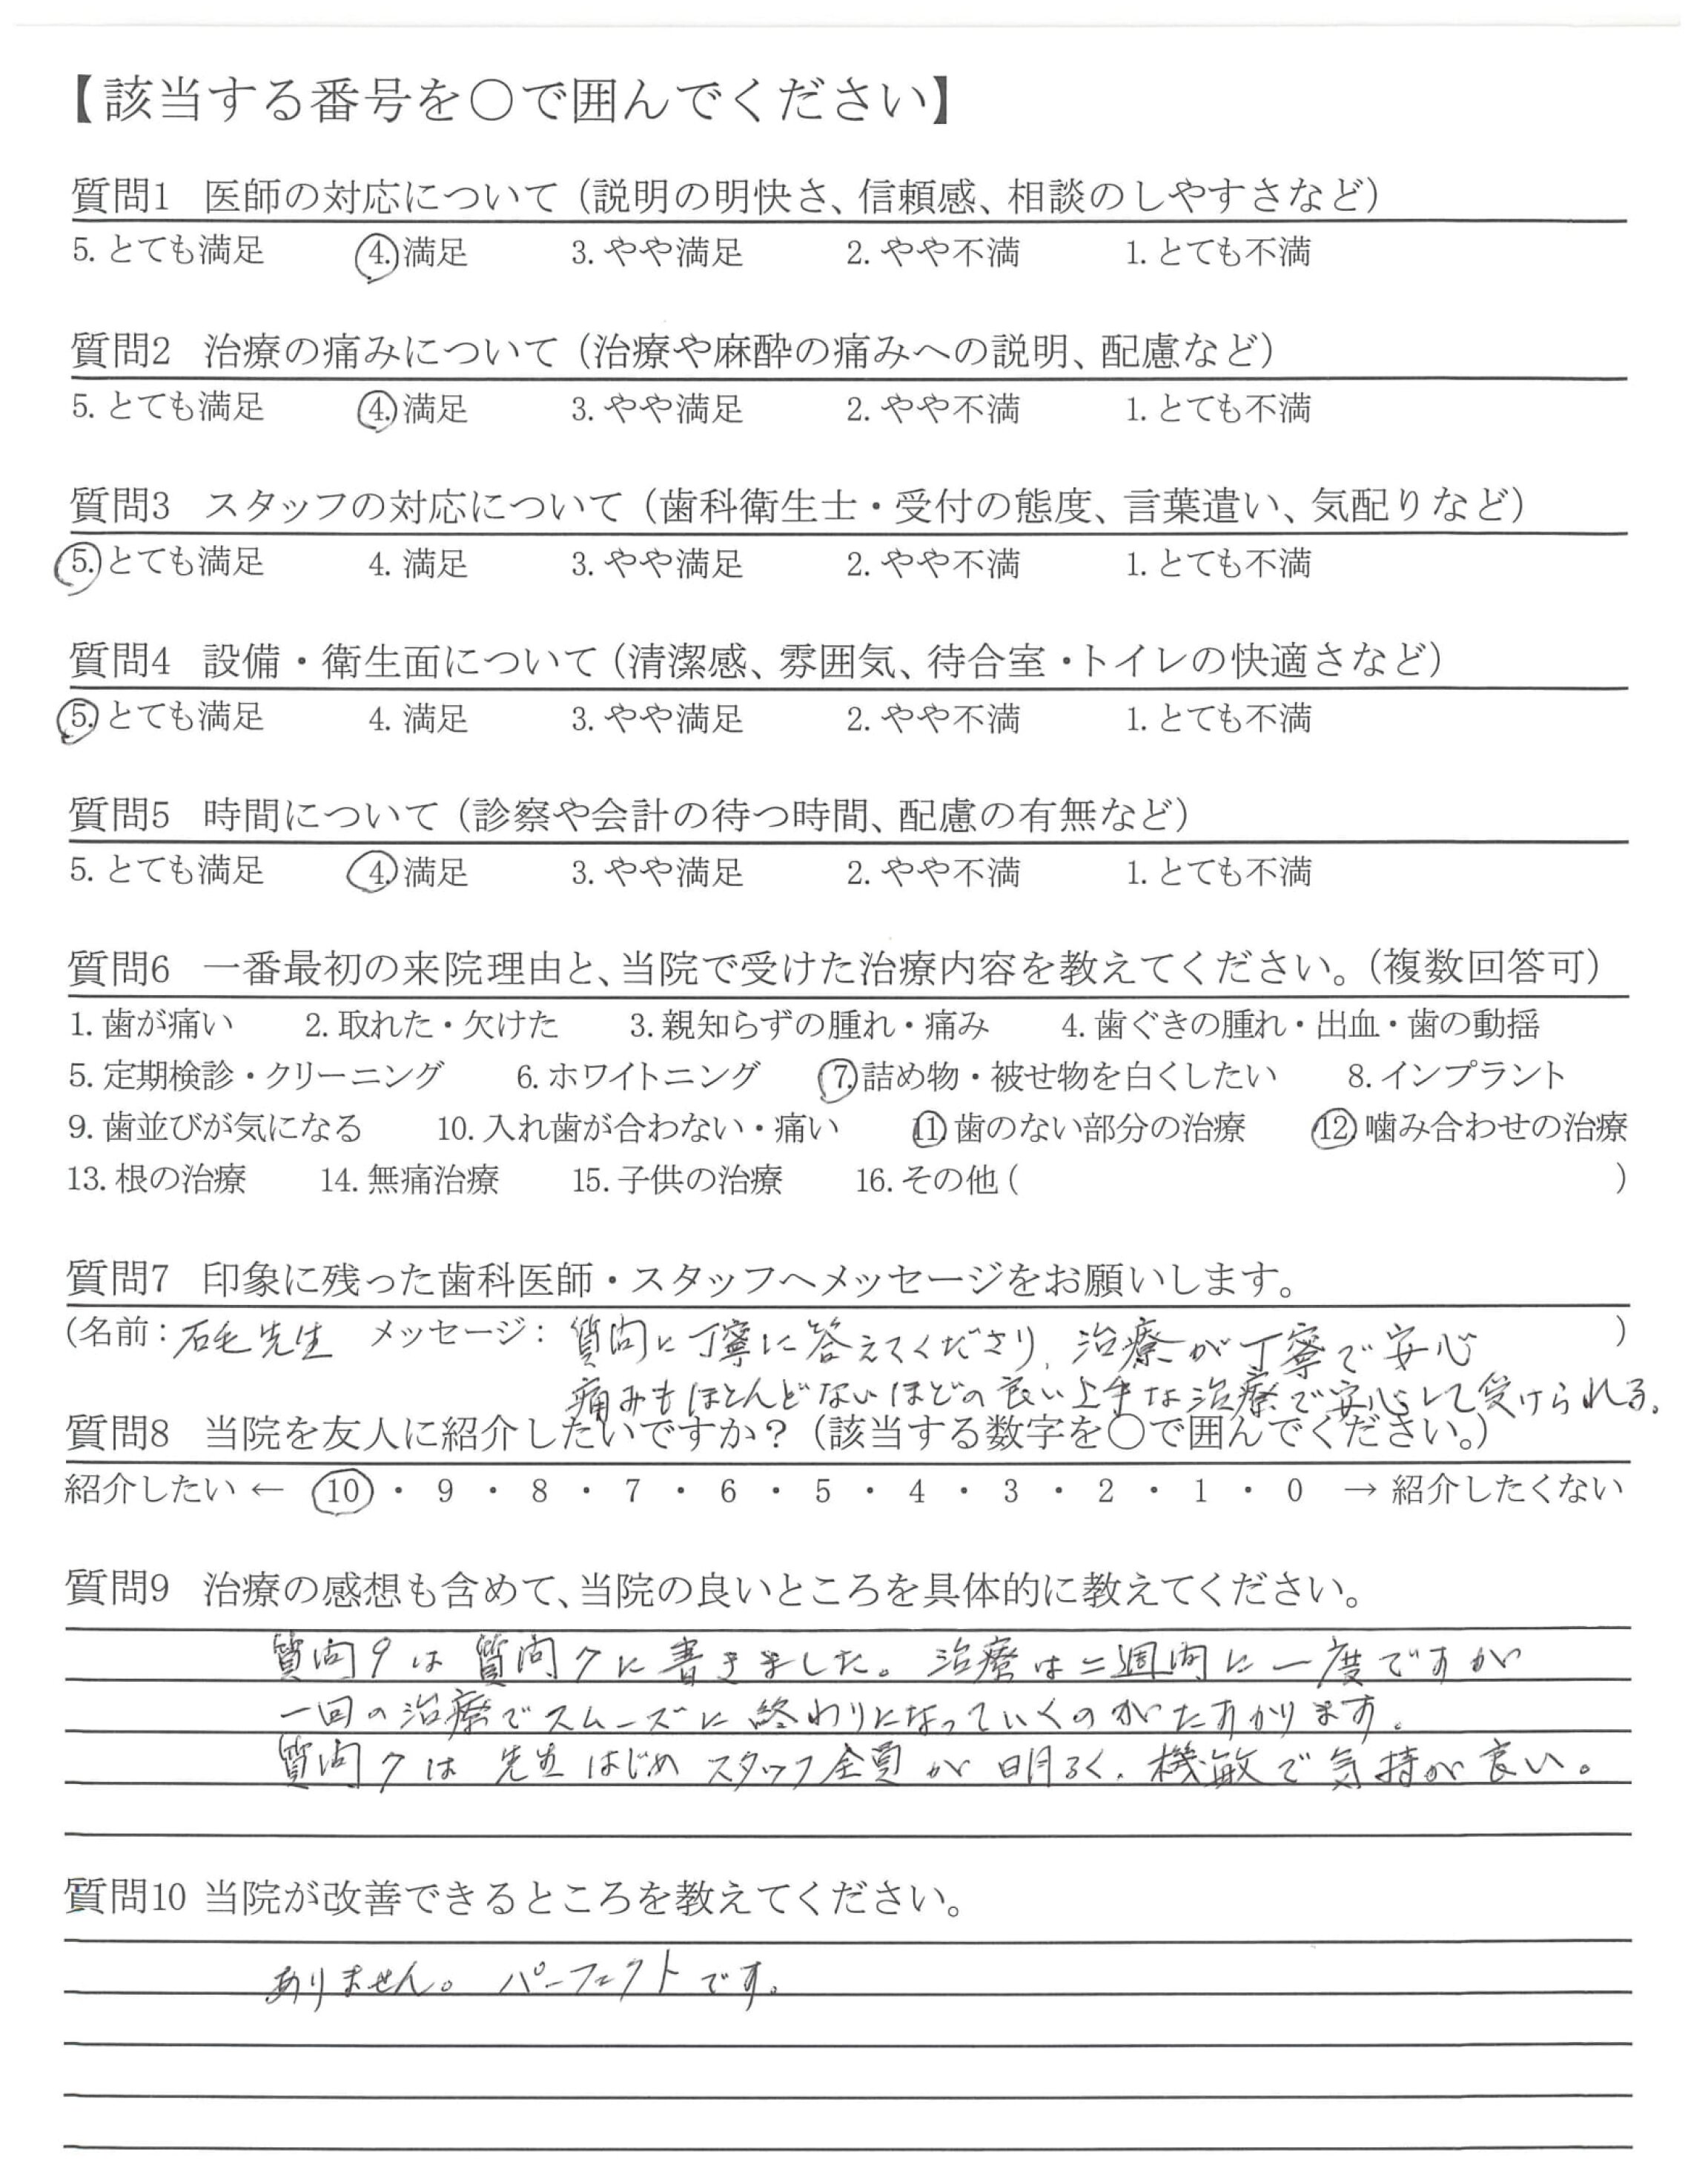 【該当する番号を○で囲んでください】
質問1 医師の対応について（説明の明快さ、信頼感、相談のしやすさなど）
5. とても満足 4. 満足 3. やや満足 2. やや不満 1. とても不満
質問2 治療の痛みについて（治療や麻酔の痛みへの説明、配慮など）
5. とても満足 4. 満足 3. やや満足 2. やや不満 1. とても不満
質問3 スタッフの対応について（歯科衛生士・受付の態度、言葉遣い、気配りなど）
5. とても満足 4. 満足 3. やや満足 2. やや不満 1. とても不満
質問4 設備・衛生面について（清潔感、雰囲気、待合室・トイレの快適さなど）
5. とても満足 4. 満足 3. やや満足 2. やや不満 1. とても不満
質問5 時間について（診察や会計の待つ時間、配慮の有無など）
5. とても満足 4. 満足 3. やや満足 2. やや不満 1. とても不満
質問6 一番最初の来院理由と、当院で受けた治療内容を教えてください。（複数回答可）
1. 歯が痛い 2. 取れた・欠けた 3. 親知らずの腫れ・痛み 4. 歯ぐきの腫れ・出血・歯の動揺
5. 定期検診・クリーニング 6. ホワイトニング 7. 詰め物・被せ物を白くしたい 8. インプラント
9. 歯並びが気になる 10. 入れ歯が合わない・痛い 11. 歯のない部分の治療 12. 噛み合わせの治療
13. 根の治療 14. 無痛治療 15. 子供の治療 16. その他（ ）
質問7 印象に残った歯科医師・スタッフへメッセージをお願いします。
（名前：石毛先生 メッセージ：質問に丁寧に答えてくださり、治療が丁寧で安心 ）
痛みもほとんどないほどの良い上手な治療で安心して受けられる。
質問8 当院を友人に紹介したいですか？（該当する数字を○で囲んでください。）
紹介したい ← 10 ・ 9 ・ 8 ・ 7 ・ 6 ・ 5 ・ 4 ・ 3 ・ 2 ・ 1 ・ 0 → 紹介したくない
質問9 治療の感想も含めて、当院の良いところを具体的に教えてください。
質問9は質問7に書きました。治療は二週間に一度ですが
一回の治療でスムーズに終わりになっていくのがたすかります。
質問7は先生はじめスタッフ全員が明るく、機敏で気持が良い。
質問10 当院が改善できるところを教えてください。
ありません。パーフェクトです。